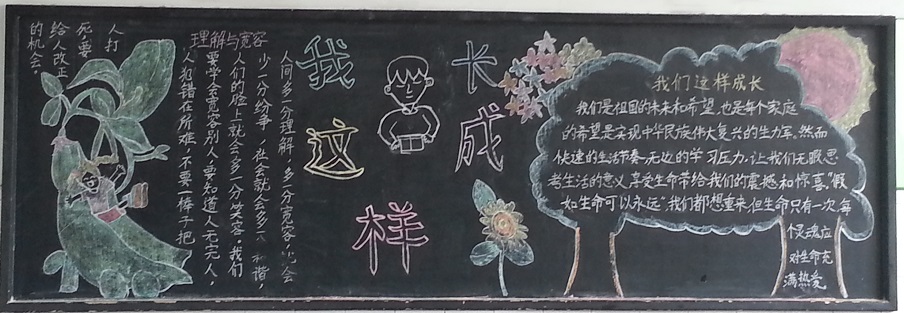 理解与宽容
人间多一分理解，多一分宽容，会
少一分纷争，社会就会多和谐，
人们的脸上就会多一分笑容。我们
要学会宽容别人，要知道人无完人，
人犯错在所难，不要棒子把
人打
死，要
给人改正
的机会。
我
这
样
长
成
我们这样成长
我们是祖国的未来和希望，也是每个家庭
的希望是实现中华民族伟大复兴的生力军。然而
快速的生活节奏，无边的学习压力，让我们无暇思
考生活的意义，享受生命带给我们的震撼和惊喜。"假
如生命可以永远"我们都想重来，但生命只有一次，每
个灵魂应
对生命充
满热爱